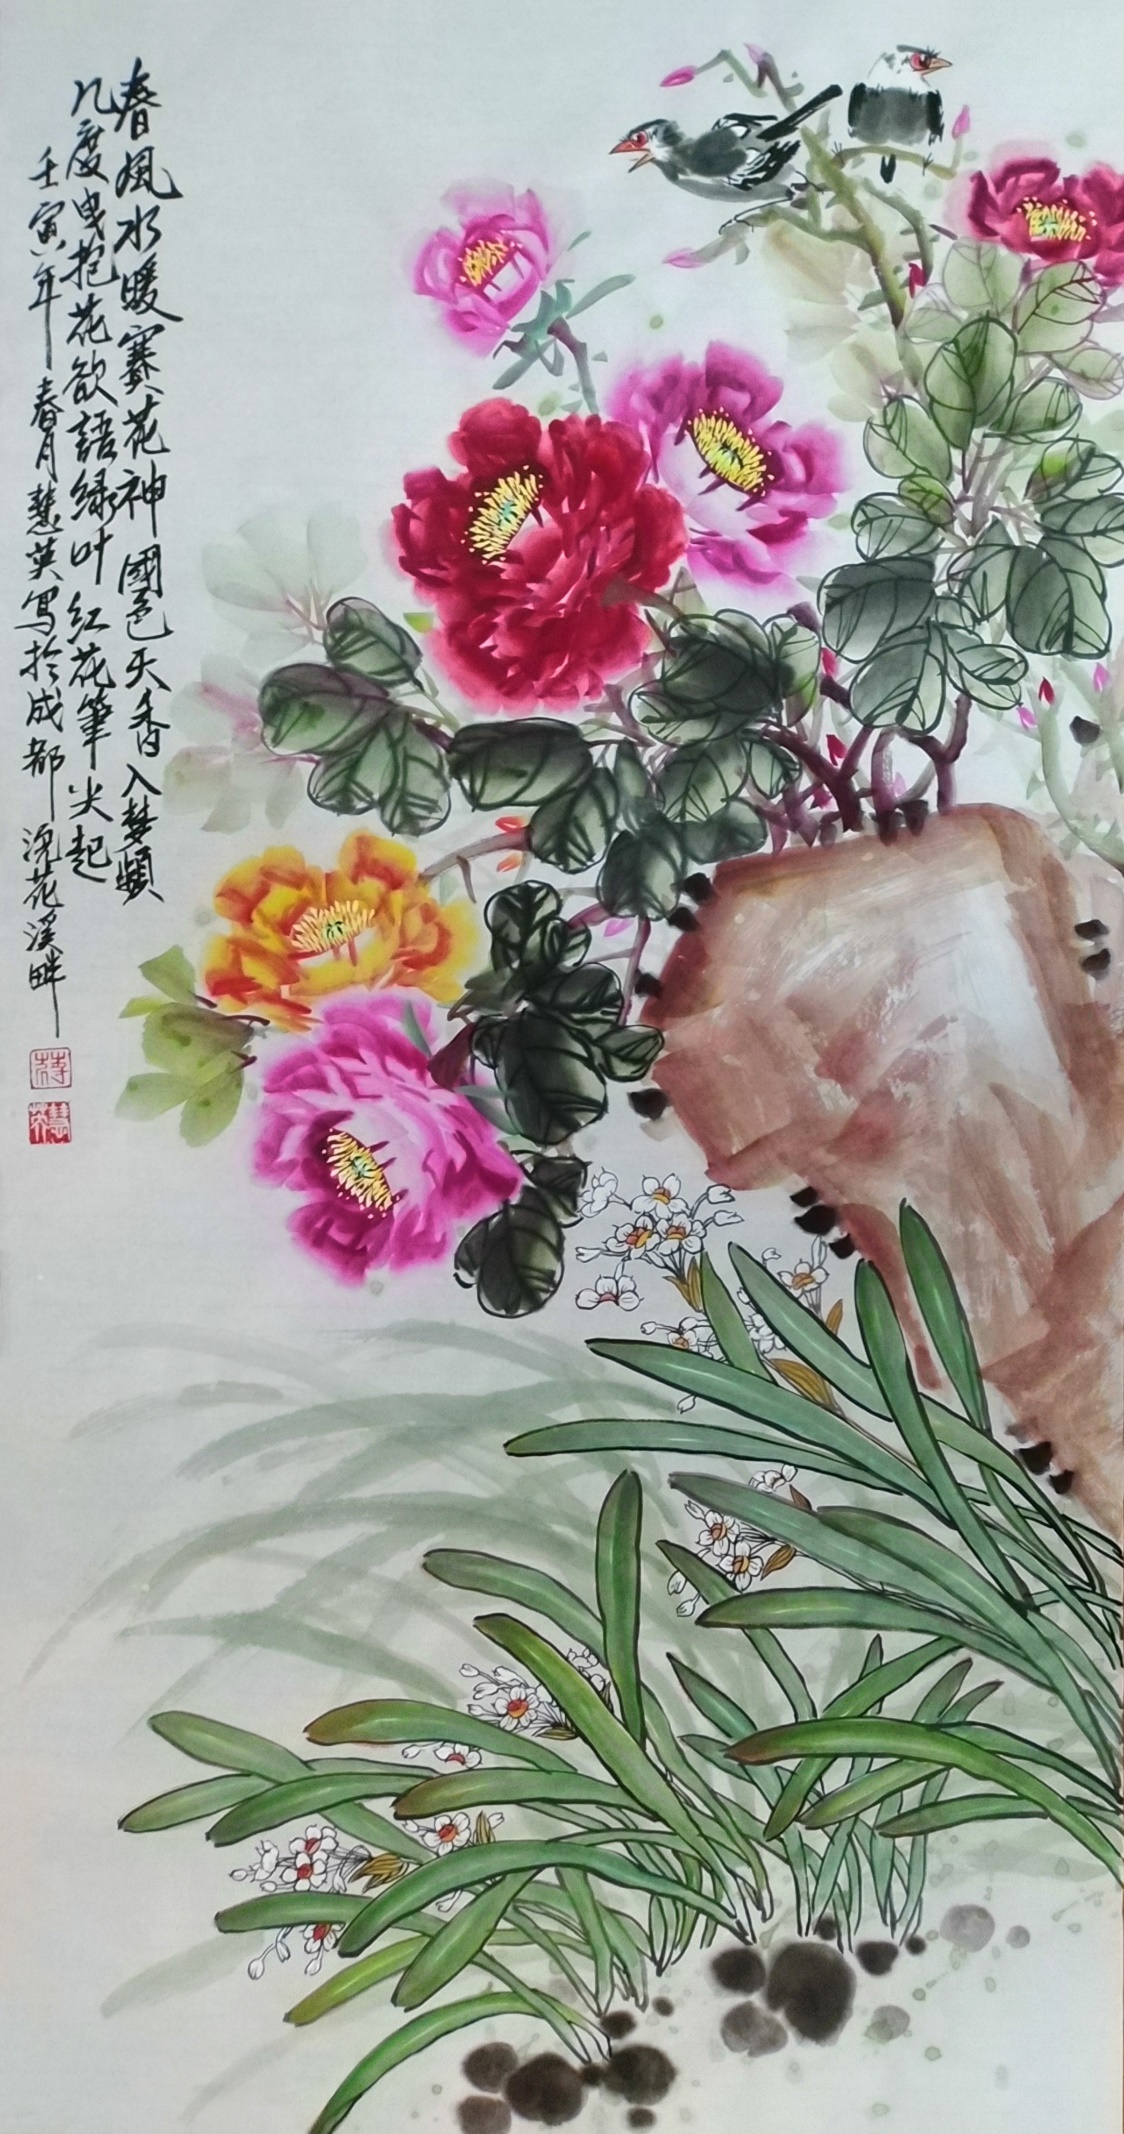 春風水暖賽花神國色天香入夢頻
几度曳抱花欲語绿叶红花筆尖起
壬寅年春月慧英寫於成都浣花溪畔
慧英